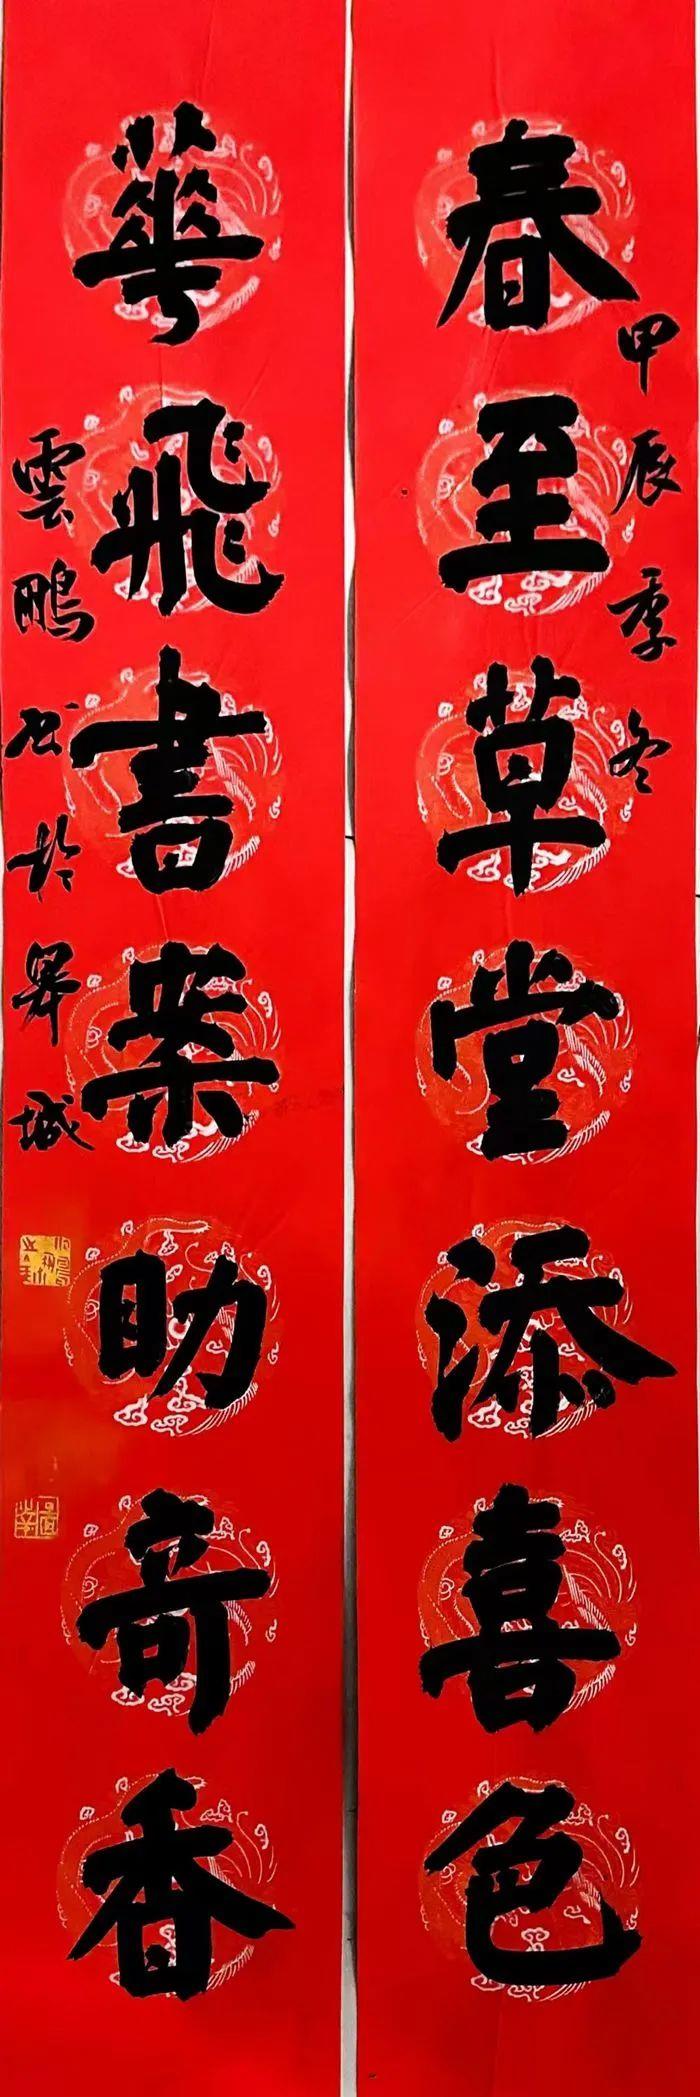 甲辰季冬
春至草堂添喜色
華飛書案助奇香
雲鵬书於皋城